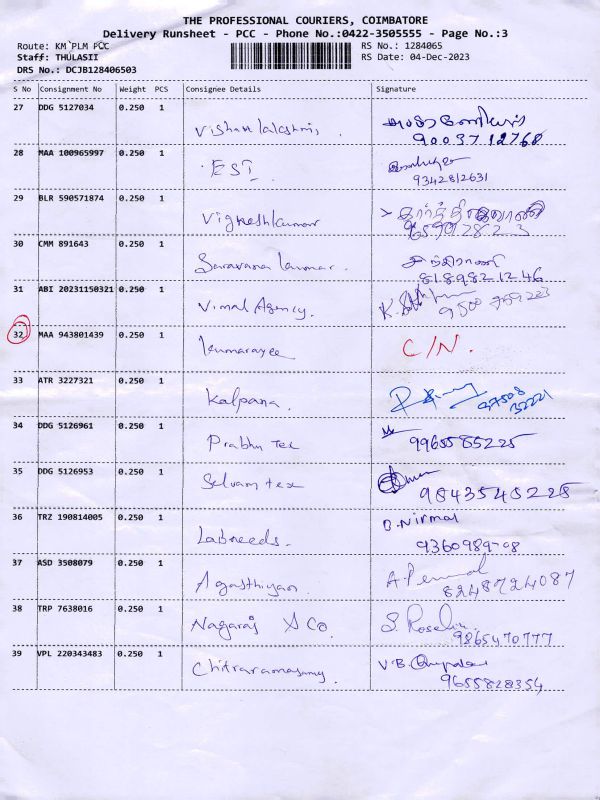 THE PROFESSIONAL COURIERS, COIMBATORE
Delivery Runsheet - PCC - Phone No.:0422-3505555 - Page No.:3
Route: KM`PLM PCC
RS No.: 1284065
Staff: THULASII
RS Date: 04-Dec-2023
DRS No.: DCJB128406503
S No Consignment No Weight PCS Consignee Details Signature
27 DDG 5127034 0.250 1
Vishalalakshmi,
9003712768
28 MAA 100965997 0.250 1
EST
9342812631
29 BLR 590571874 0.250 1
Vigneshkumar
30 CMM 891643 0.250 1
Saravana kumar.
8189821246
31 ABI 20231150321 0.250 1
Vimal Agency.
32 MAA 943801439 0.250 1
Kumarayee C/N.
33 ATR 3227321 0.250 1
Kalpana.
97508
32221
34 DDG 5126961 0.250 1
Prabhu Tex 9965585225
35 DDG 5126953 0.250 1
Selvam tex 9843548228
36 TRZ 190814005 0.250 1
B.Nirmal
Labneeds.
9360989-08
37 ASD 3508079 0.250 1
Agasthiyan A.Perumal
8248724087
38 TRP 7638016 0.250 1
Nagaraj & Co. S. Roselin.
9865470777
39 VPL 220343483 0.250 1
Chitraramasamy. V.B.
9655828354